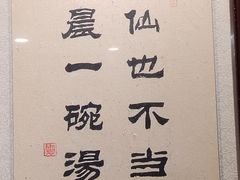 仙也不当
晨一碗湯